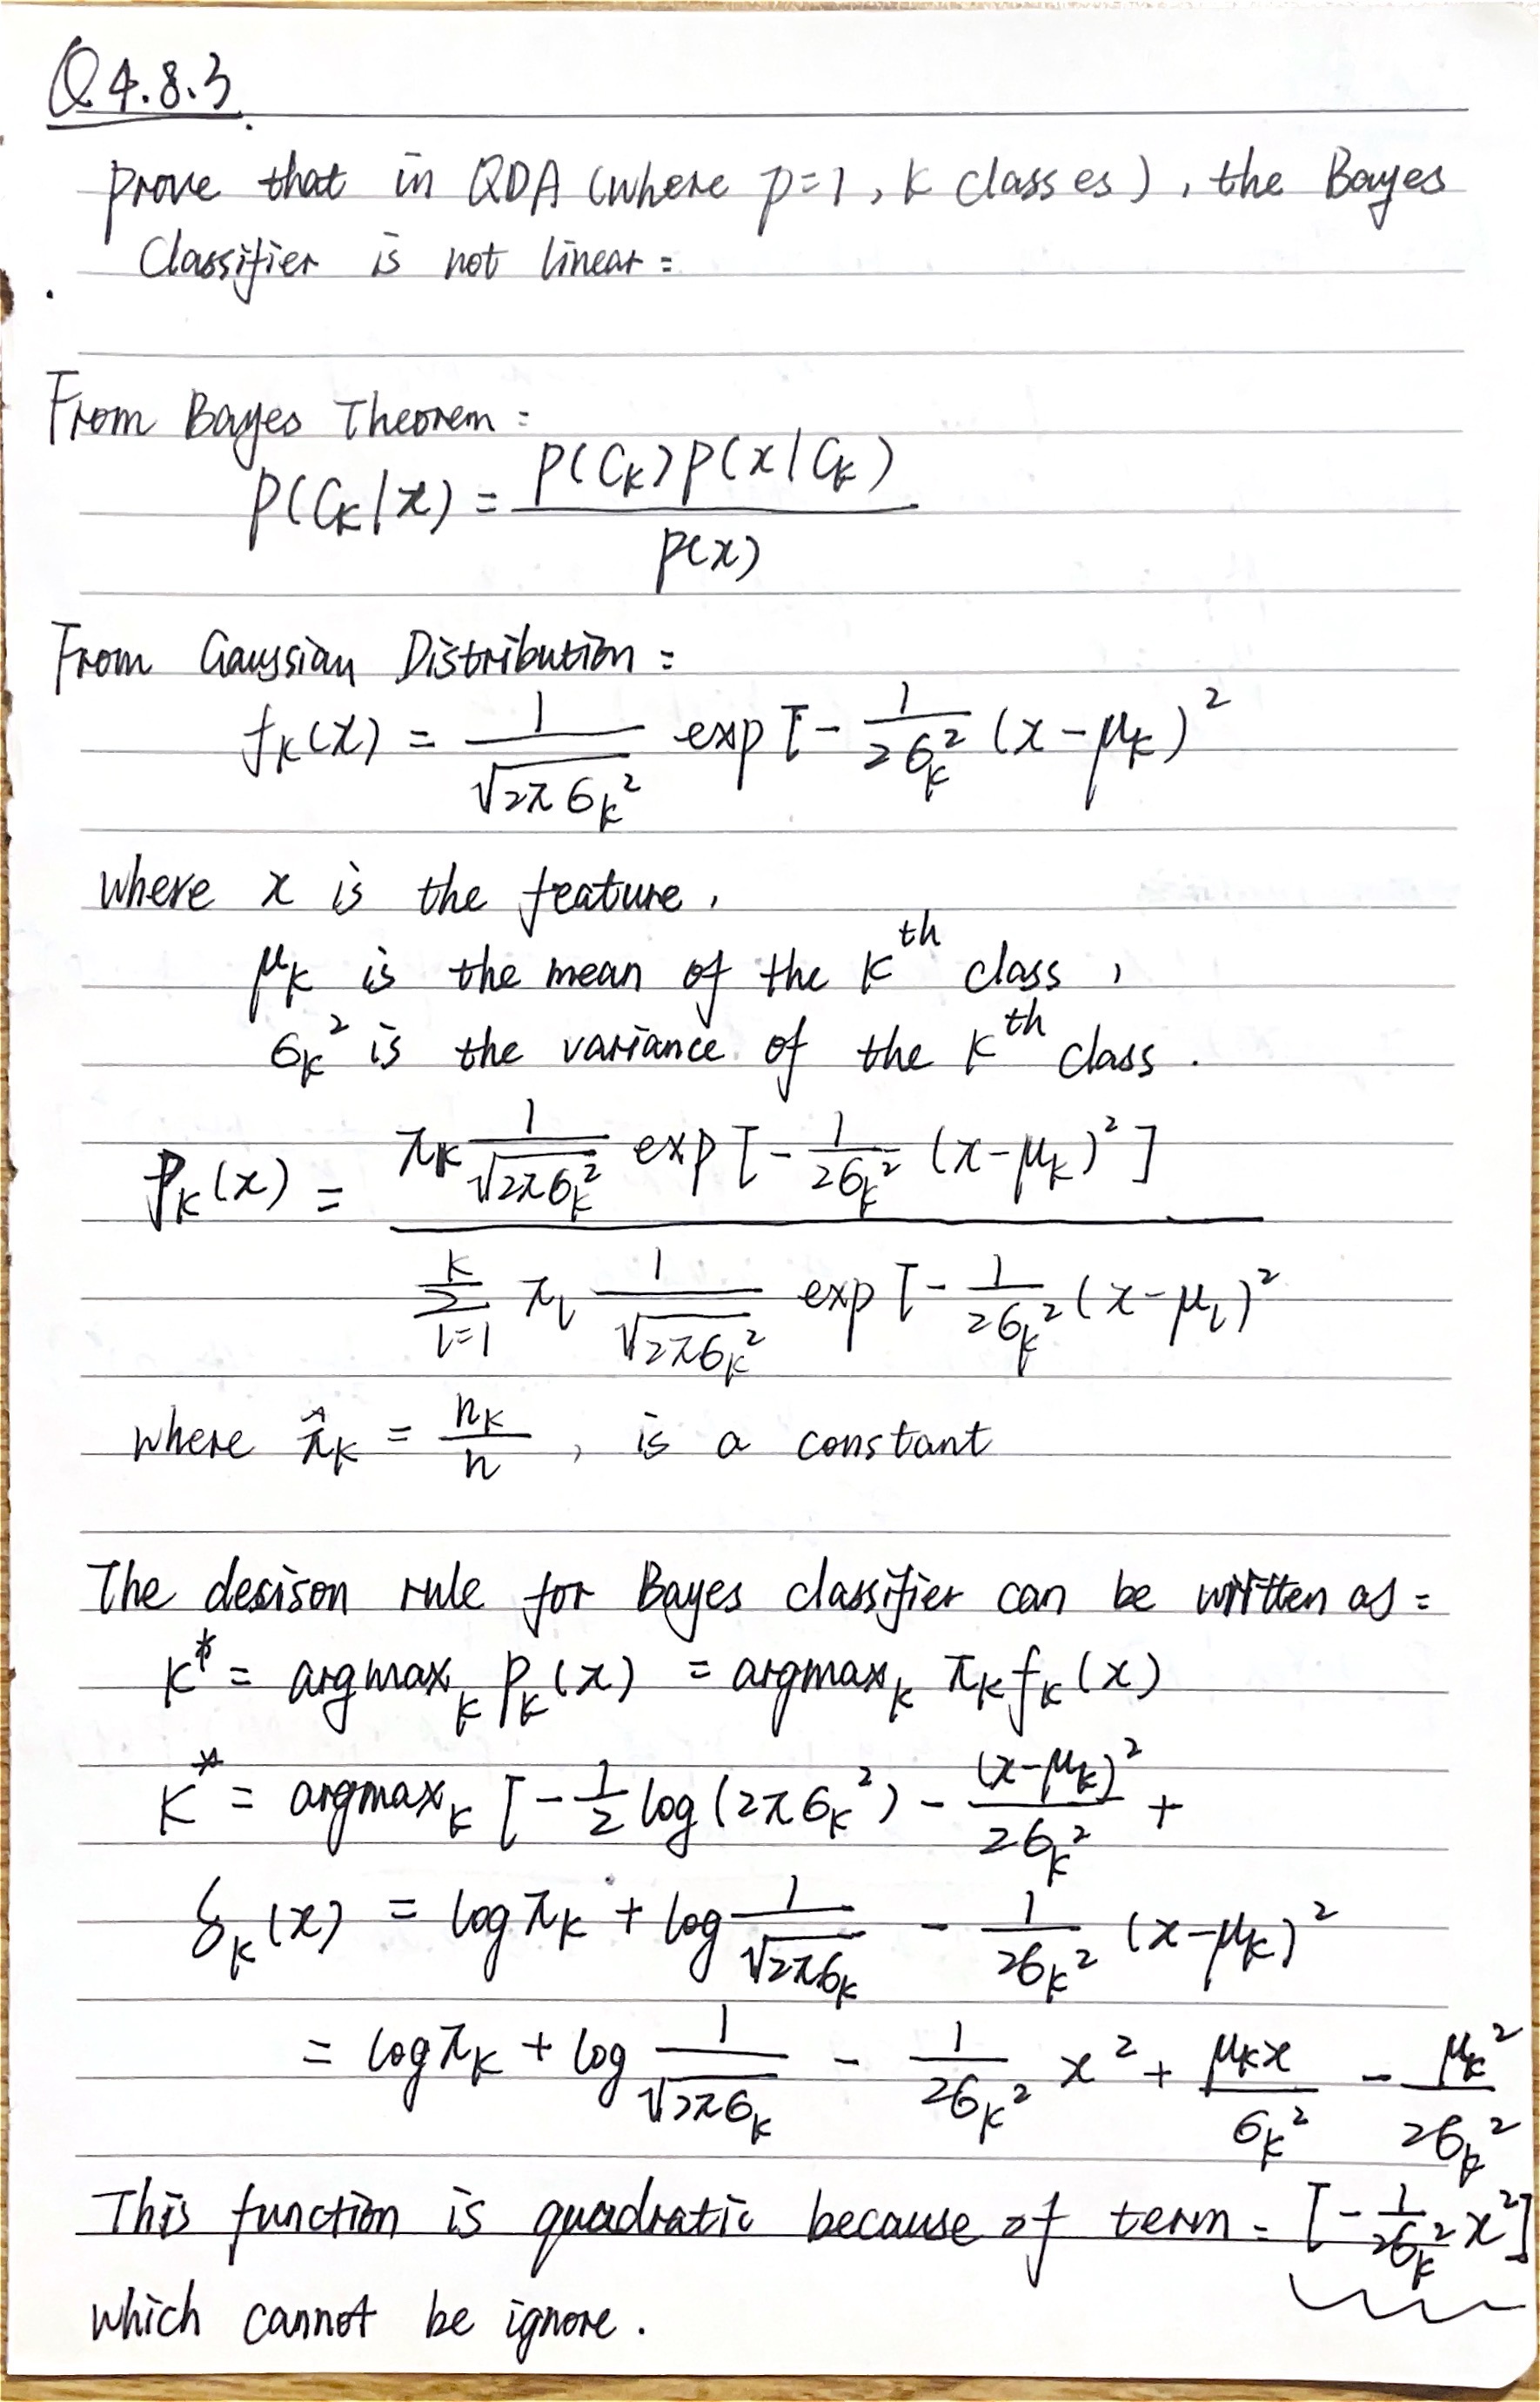 Q4.8.3
prove that in QDA (where p=1, K classes), the Bayes
Classifier is not linear:
From Bayes Theorem:
P(C_K|x) = P(C_K)P(x|C_K) / P(x)
From Gaussian Distribution:
f_K(x) = 1/√(2πσ_K²) exp [-1/(2σ_K²) (x-μ_K)²
where x is the feature,
μ_K is the mean of the K^th class,
σ_K² is the variance of the K^th class.
P_K(x) = π_K 1/√(2πσ_K²) exp [-1/(2σ_K²) (x-μ_K)²] / Σ_{l=1}^{K} π_l 1/√(2πσ_K²) exp [-1/(2σ_K²) (x-μ_l)²
where π̂_K = n_K/n, is a constant
The desison rule for Bayes classifier can be written as:
K* = argmax_K P_K(x) = argmax_K π_K f_K(x)
K* = argmax_K [-1/2 log(2πσ_K²) - (x-μ_K)²/(2σ_K²) +
δ_K(x) = log π_K + log 1/(√2πσ_K) - 1/(2σ_K²) (x-μ_K)²
= log π_K + log 1/(√2πσ_K) - 1/(2σ_K²) x² + μ_K x/σ_K² - μ_K²/(2σ_K²)
This function is quadratic because of term: [-1/(2σ_K²) x²]
which cannot be ignore.